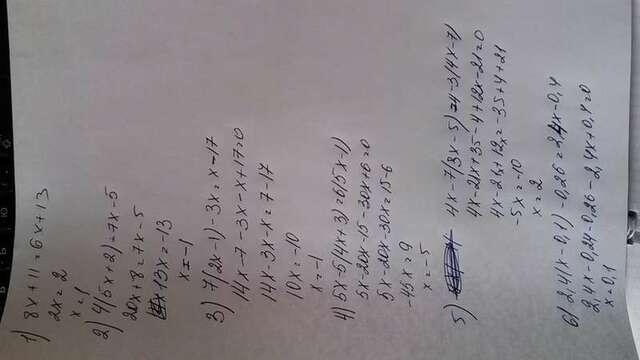 1) 8x+11=6x+13
2x=2
x=1
2) 4(5x+2)=7x-5
20x+8=7x-5
13x=-13
x=-1
3) 7(2x-1)-3x=x-17
14x-7-3x-x+17=0
14x-3x-x=7-17
10x=-10
x=-1
4) 5x-5(4x+3)=6(5x-1)
5x-20x-15-30x+6=0
5x-20x-30x=15-6
-45x=9
x=-5
5) 4x-7(3x-5)=4-3(4x-7)
4x-21x+35-4+12x-21=0
4x-21x+12x=-35+4+21
-5x=-10
x=2
6) 2,4(x-0,1)-0,26=2,4x-0,4
2,4x-0,24-0,26-2,4x+0,4=0
x=0,1